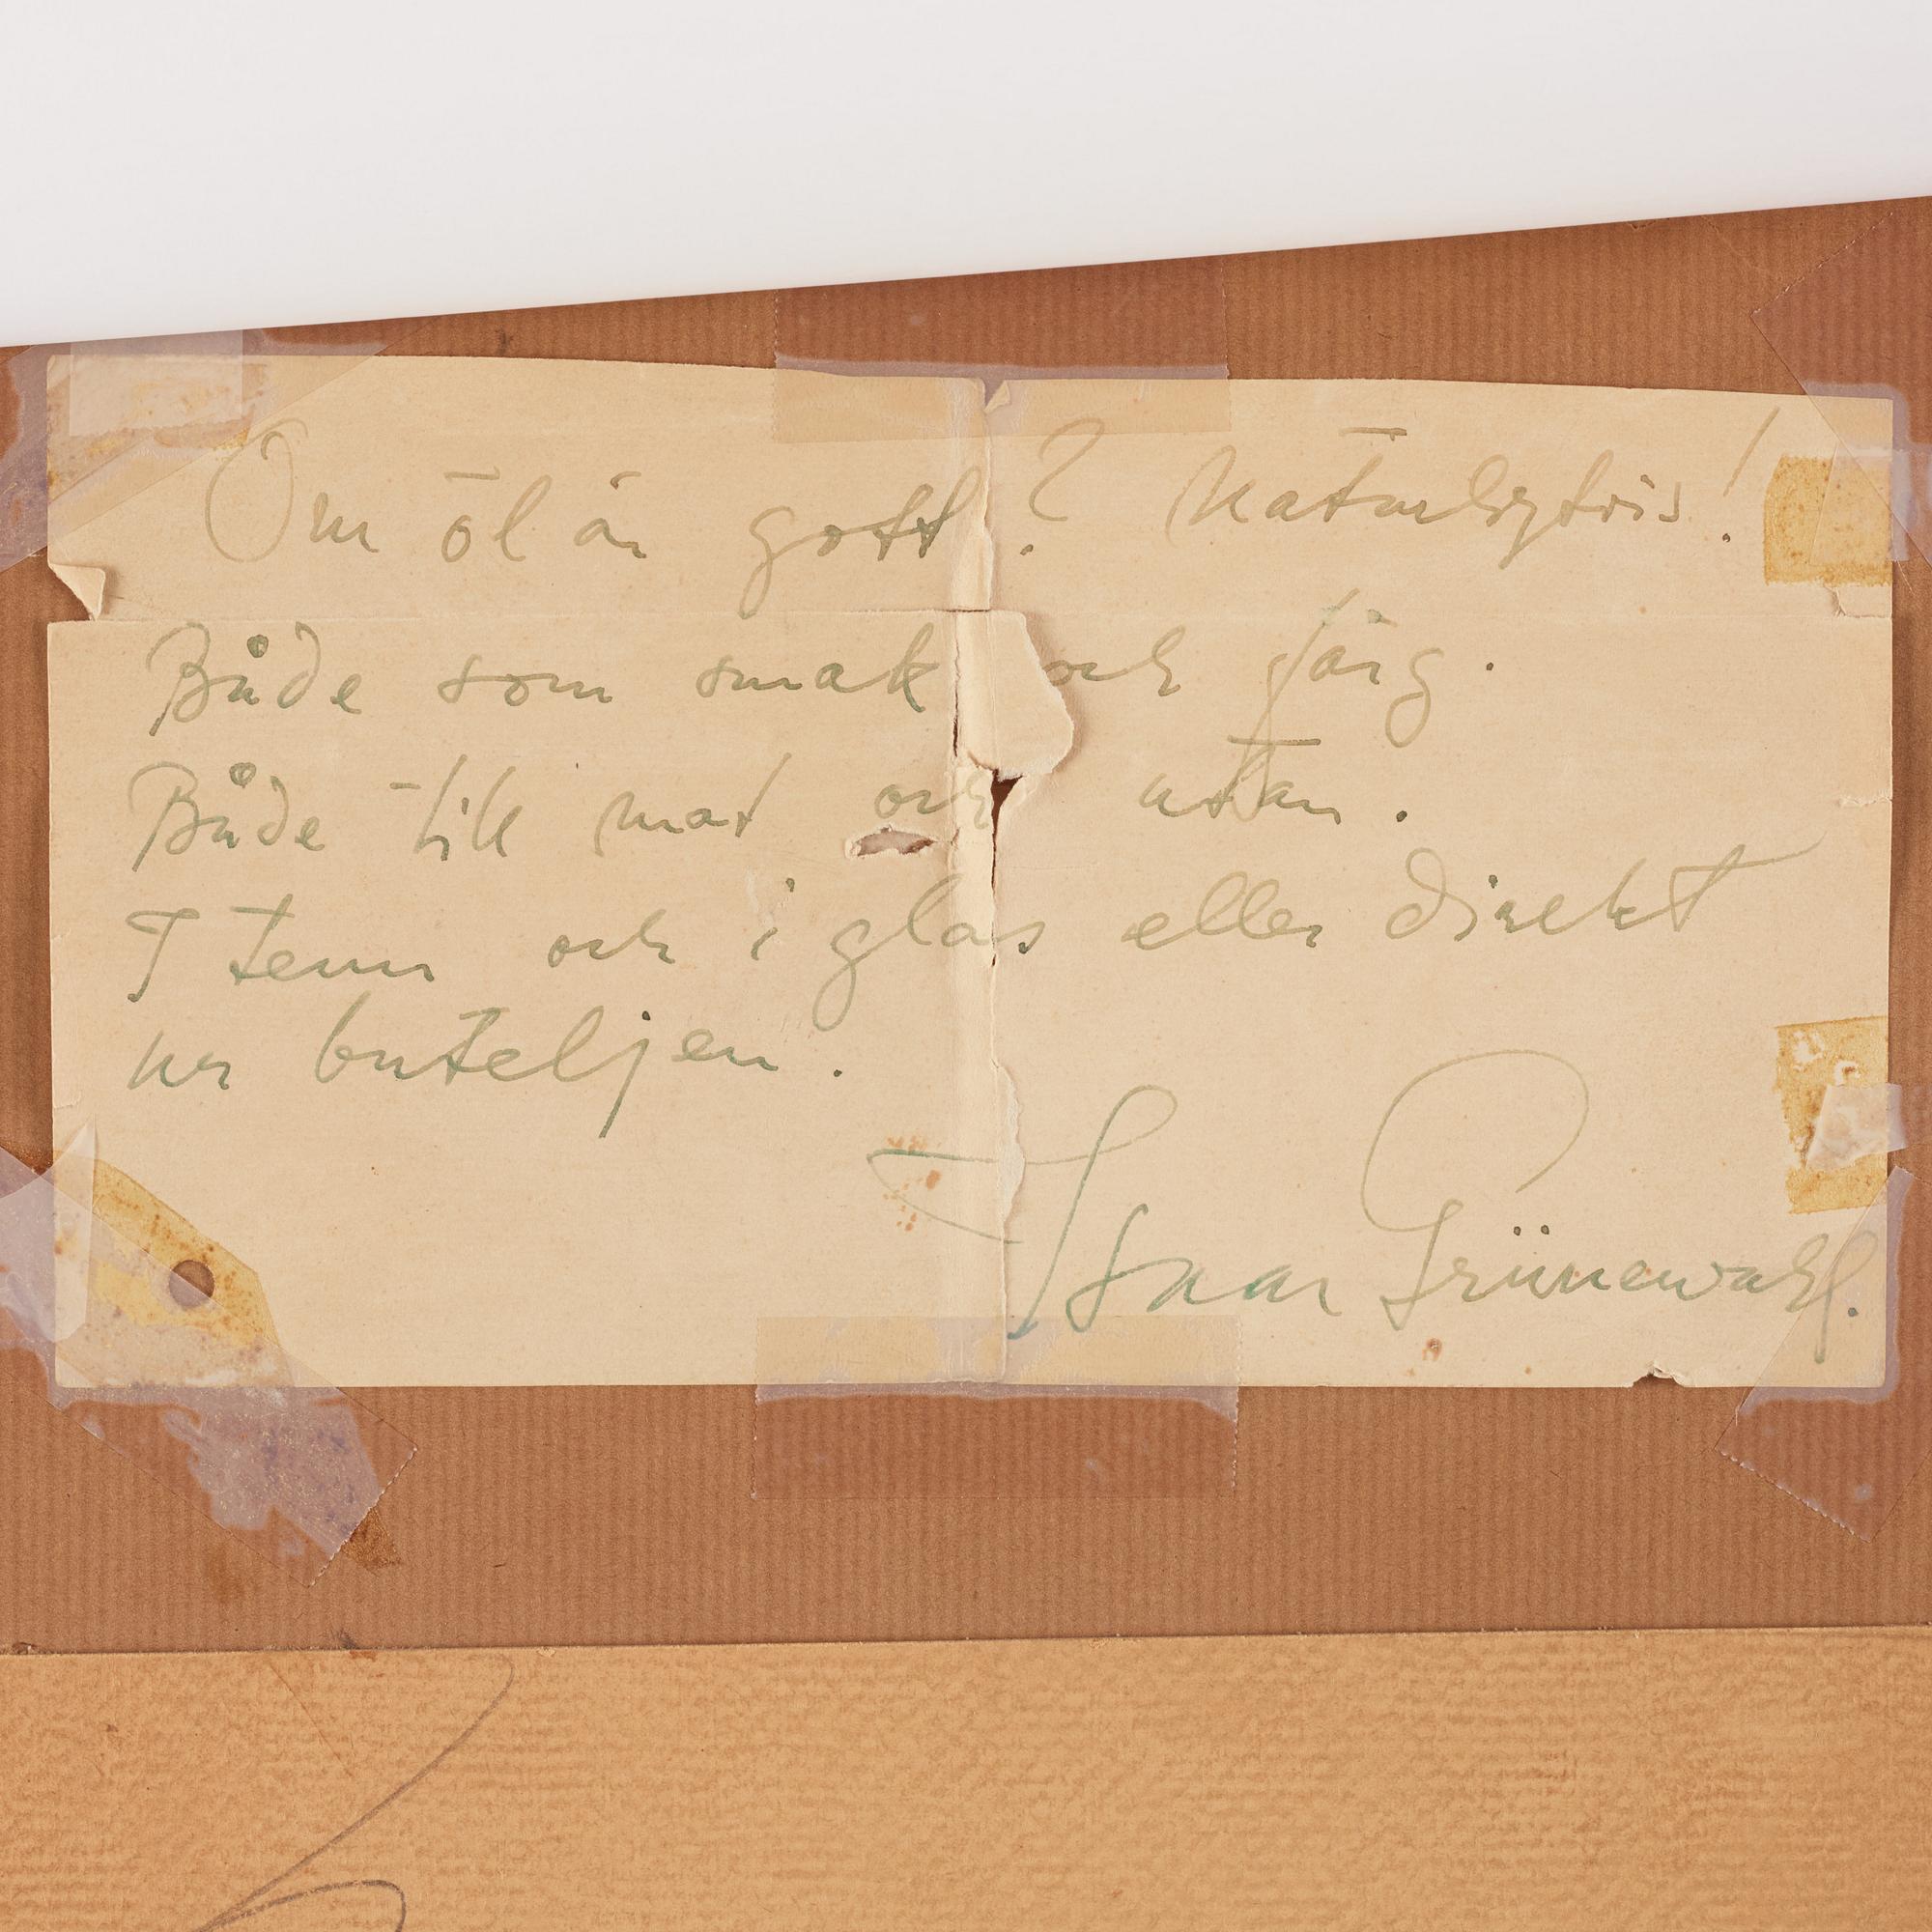 Om öl är gott? Naturligtvis!
Både som smak och färg.
Både till mat och utan.
I tenn och i glas eller direkt
ur buteljen.
Isaac Grünewald.